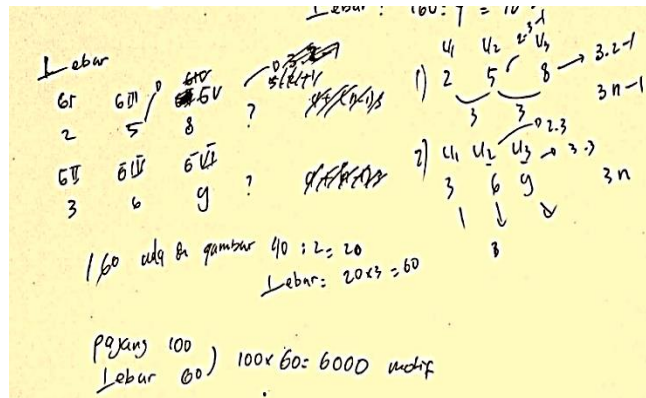 Lebar : 160 : 4 =
Lebar
GI GIII GV ?
2 5 8
GII GIV GVI
3 6 9 ?
1) U1 U2 U3
2 5 8 → 3.2-1
3 3
3n-1
2) U1 U2 U3 → 3.3
2.3
3 6 9
3n
160 ada di gambar 40 : 2 = 20
Lebar : 20x3 = 60
pajang 100
Lebar 60) 100x60 = 6000 motif